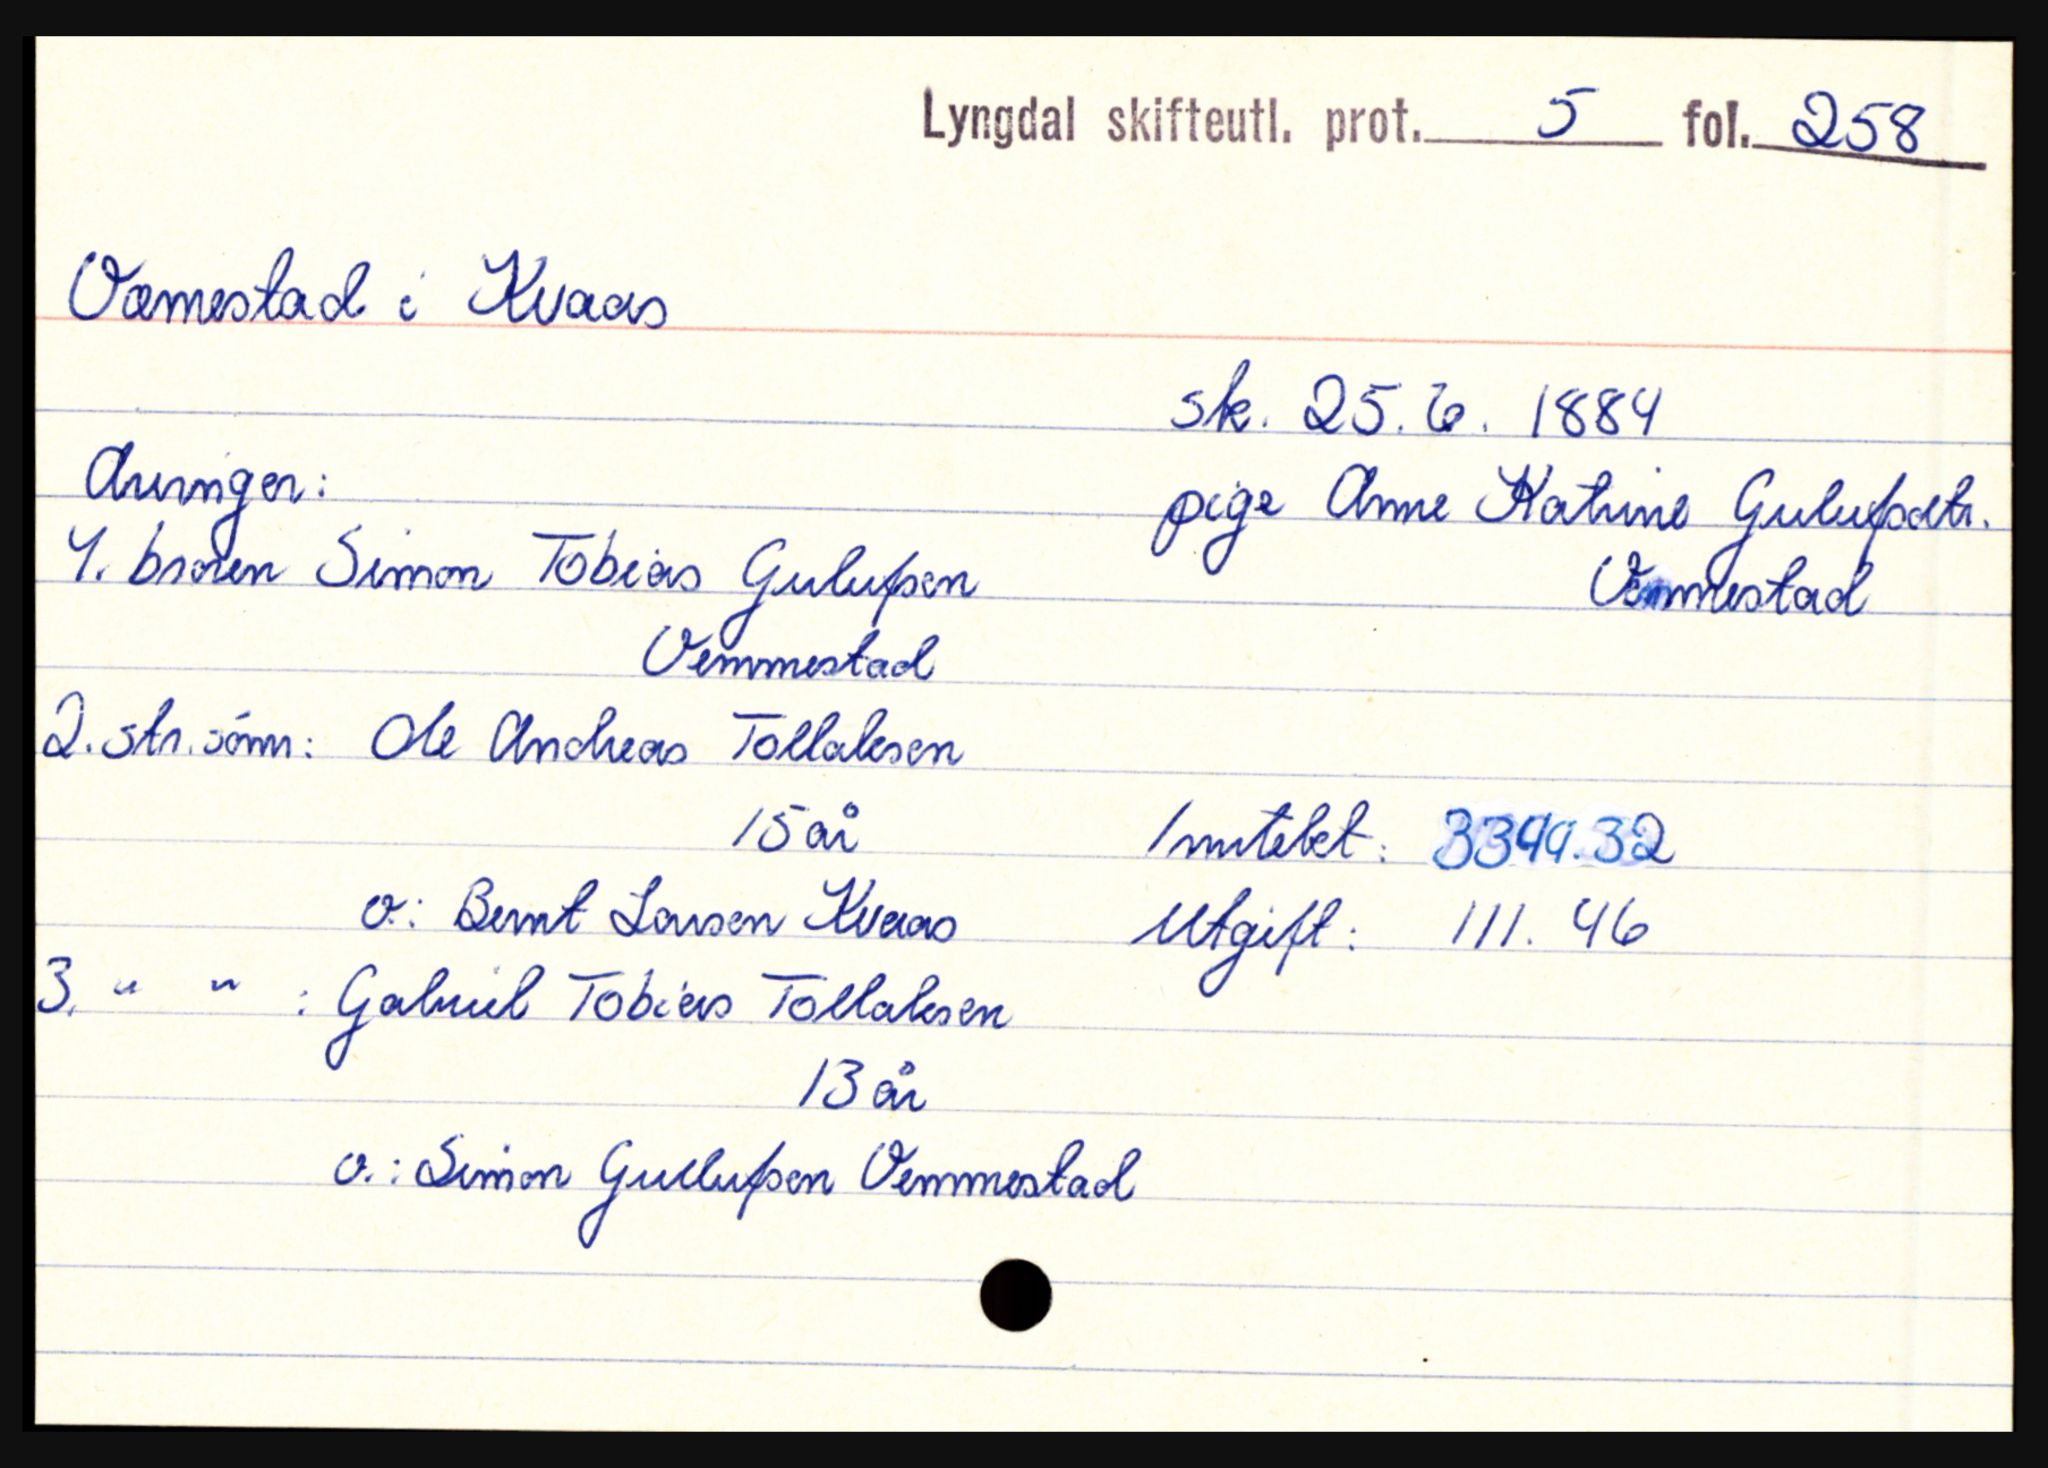 Lyngdal skifteutl. prot. 5 fol. 258
Væmestad i Kvaas
sk. 25.6. 1884
Arvinger:
pige Anne Katrine Gulufsdtr.
Vemmestad
1. broren Simon Tobias Gulufsen
Vemmestad
2. str. sønn: Ole Andreas Tollaksen
15 år
v: Bernt Larsen Kvaas
3. " " : Gabriel Tobias Tollaksen
13 år
v.: Simon Gullufsen Vemmestad
Inntekt: 32
Utgift: 111.46